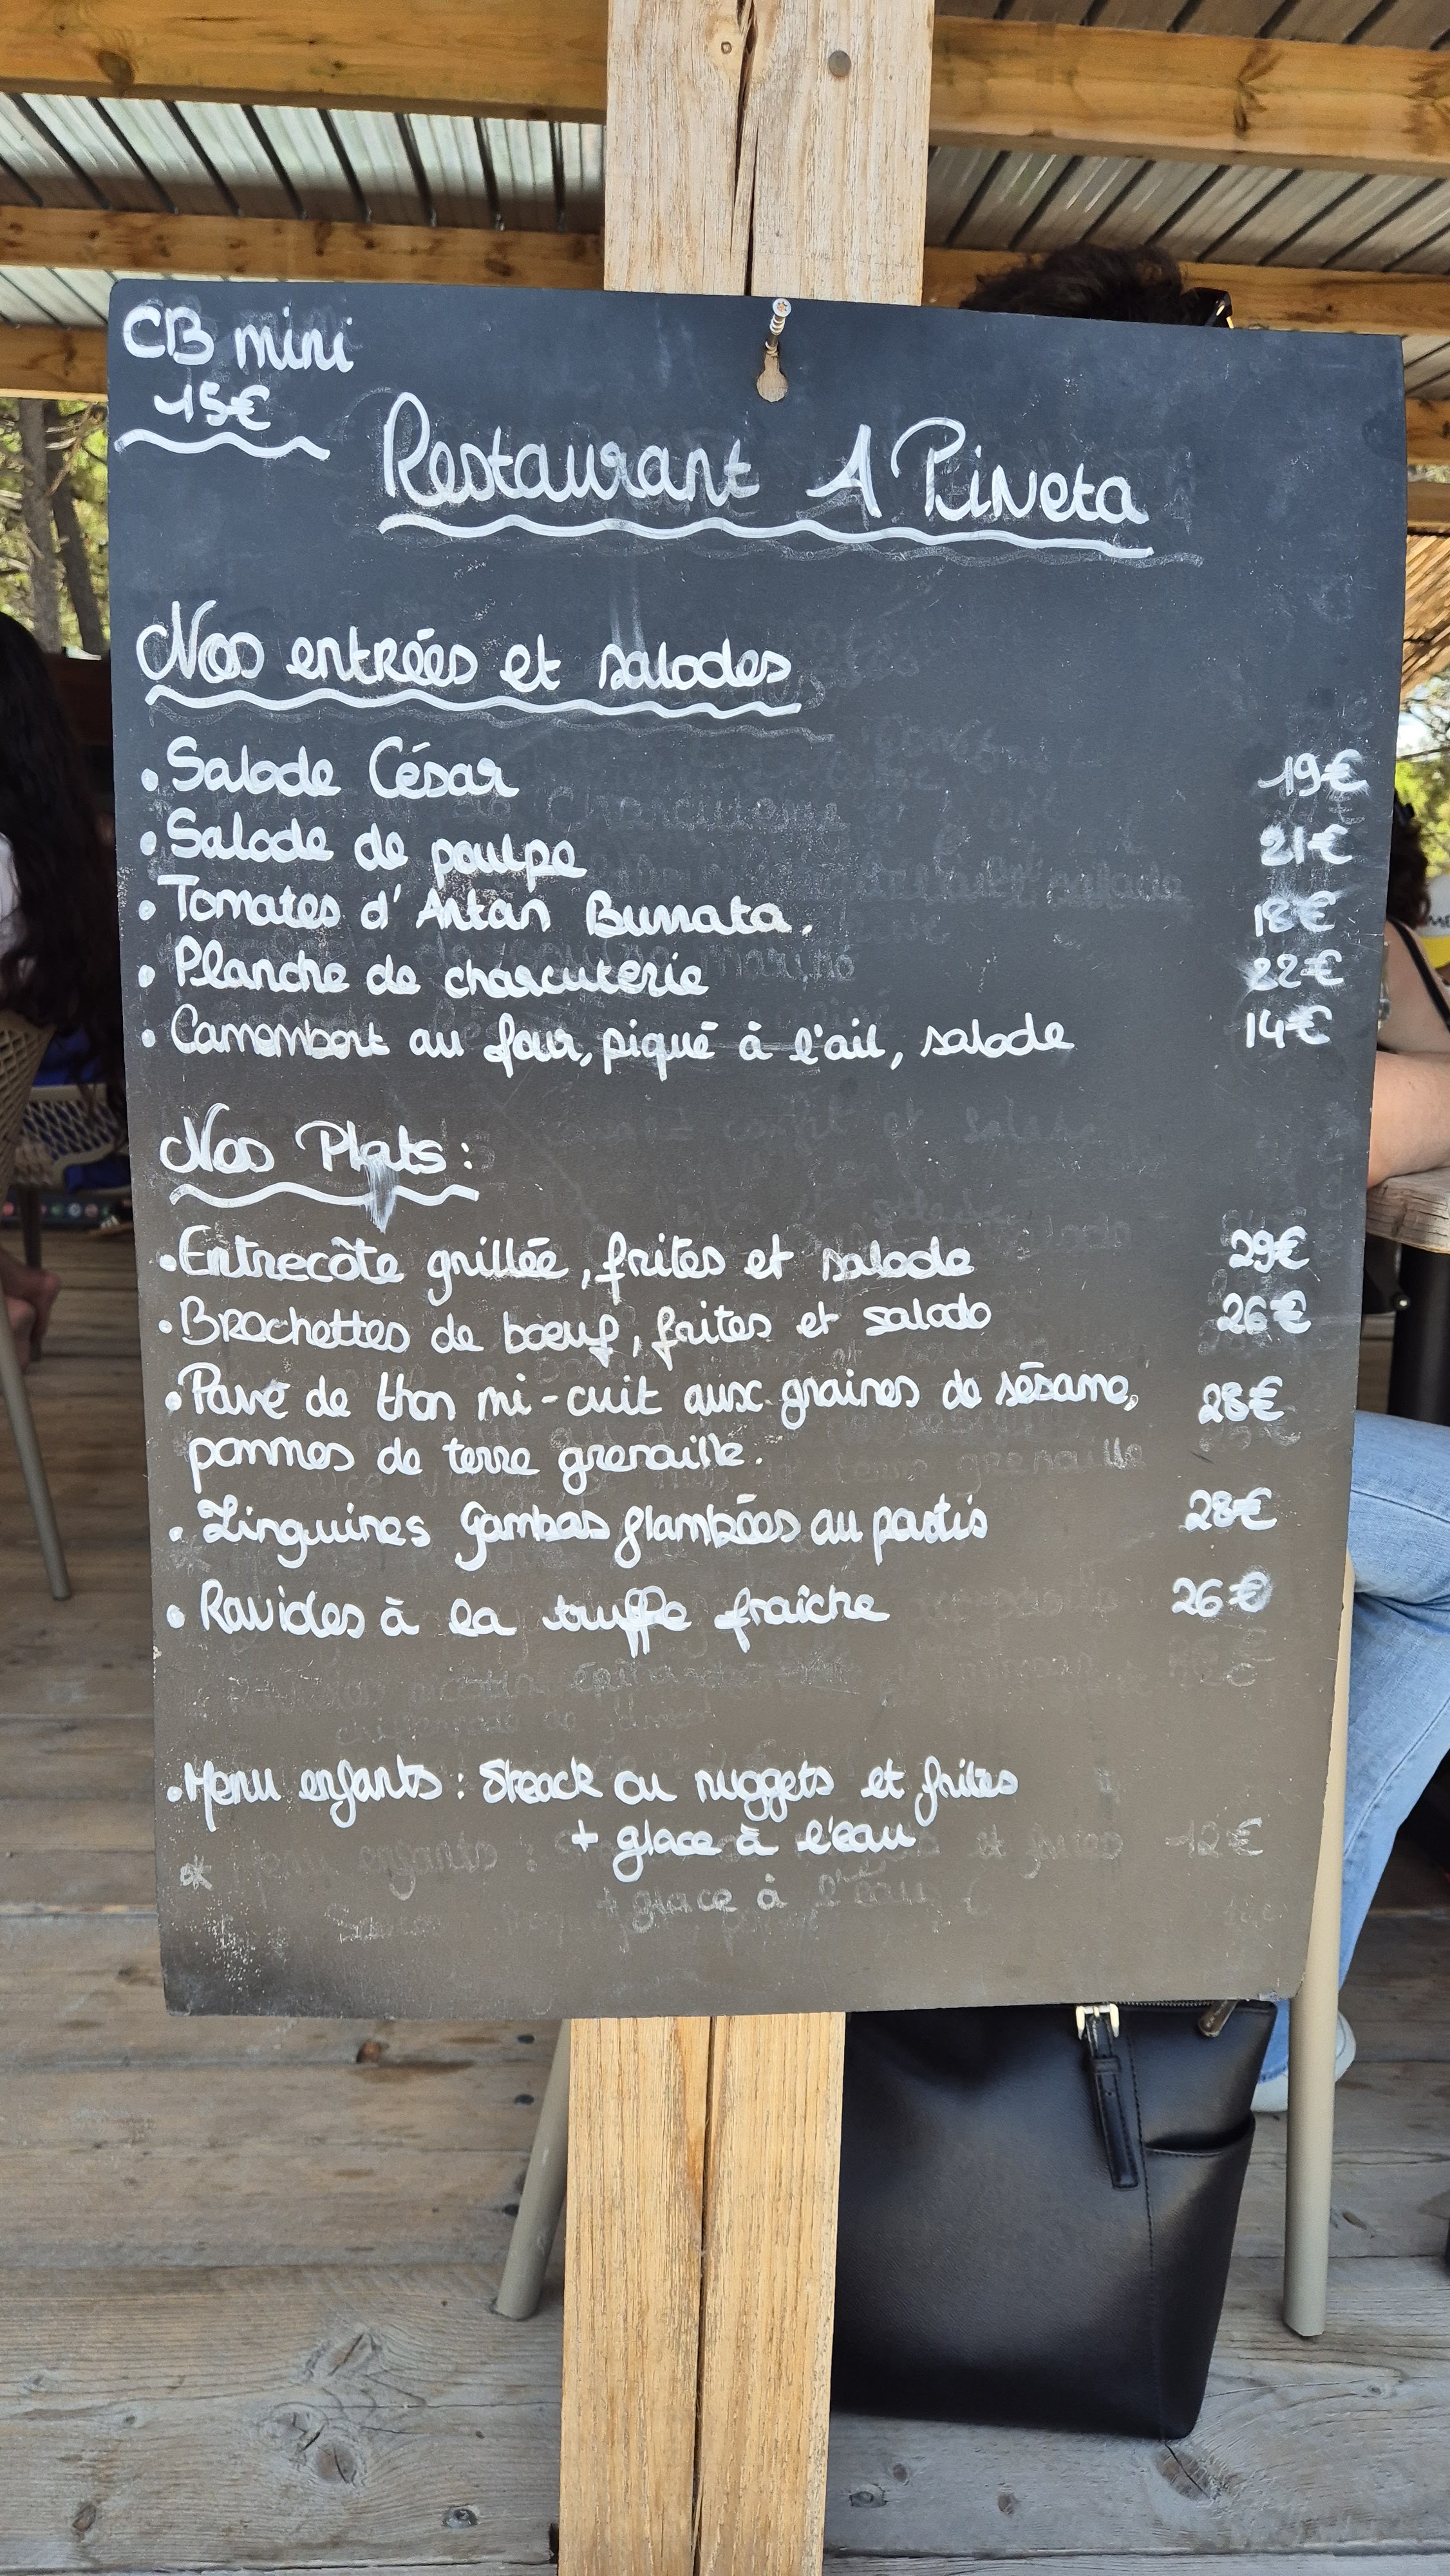 CB mini
15€
Restaurant A Pineta
Nos entrées et salades
• Salade César 19€
• Salade de poulpe 21€
• Tomates d'Antan Burrata. 18€
• Planche de charcuterie 22€
• Camembert au four, piqué à l'ail, salade 14€
Nos Plats :
• Entrecôte grillée, frites et salade 29€
• Brochettes de bœuf, frites et salade 26€
• Pavé de thon mi-cuit aux graines de sésame, 28€
pommes de terre grenaille.
• Linguines gambas flambées au pastis 28€
• Ravioles à la truffe fraîche 26€
• Menu enfants : Steack ou nuggets et frites
+ glace à l'eau
12€
+ glace à l'eau